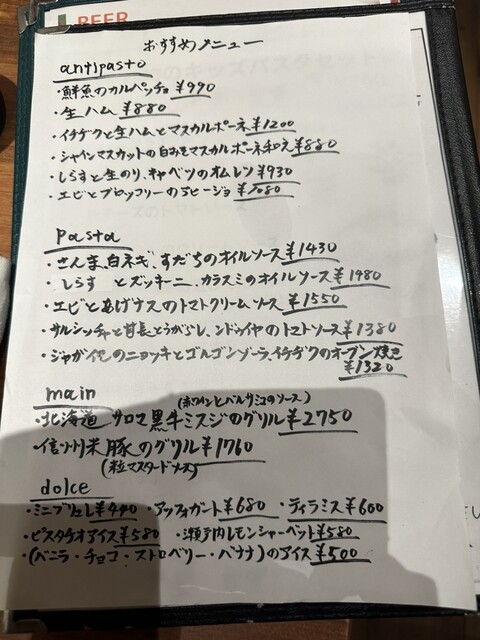 BEER
おすすめメニュー
antipasto
・鮮魚のカルパッチョ ¥990
・生ハム ¥880
・イチヂクと生ハムとマスカルポーネ ¥1200
・シャインマスカットの白みそマスカルポーネ和え ¥880
・しらすと生のり、キャベツのオムレツ ¥930
・エビとブロッコリーのアヒージョ ¥1080
pasta
・さんま、白ネギ、すだちのオイルソース ¥1430
・しらすとズッキーニ、カラスミのオイルソース ¥1480
・エビとあげナスのトマトクリームソース ¥1550
・サルシッチャと甘長とうがらし、ンドゥイヤのトマトソース ¥1380
・ジャガイモのニョッキとゴルゴンゾーラ、イチヂクのオーブン焼き
¥1320
main
(赤ワインとバルサミコのソース)
・北海道 サロマ黒牛ミスジのグリル ¥2750
・信州米豚のグリル ¥1760
(粒マスタードソース)
dolce
・ミニブリュレ ¥440 ・アッフォガート ¥680 ・ティラミス ¥600
・ピスタチオアイス ¥580 ・瀬戸内レモンシャーベット ¥580
・(バニラ・チョコ・ストロベリー・バナナ)のアイス ¥500